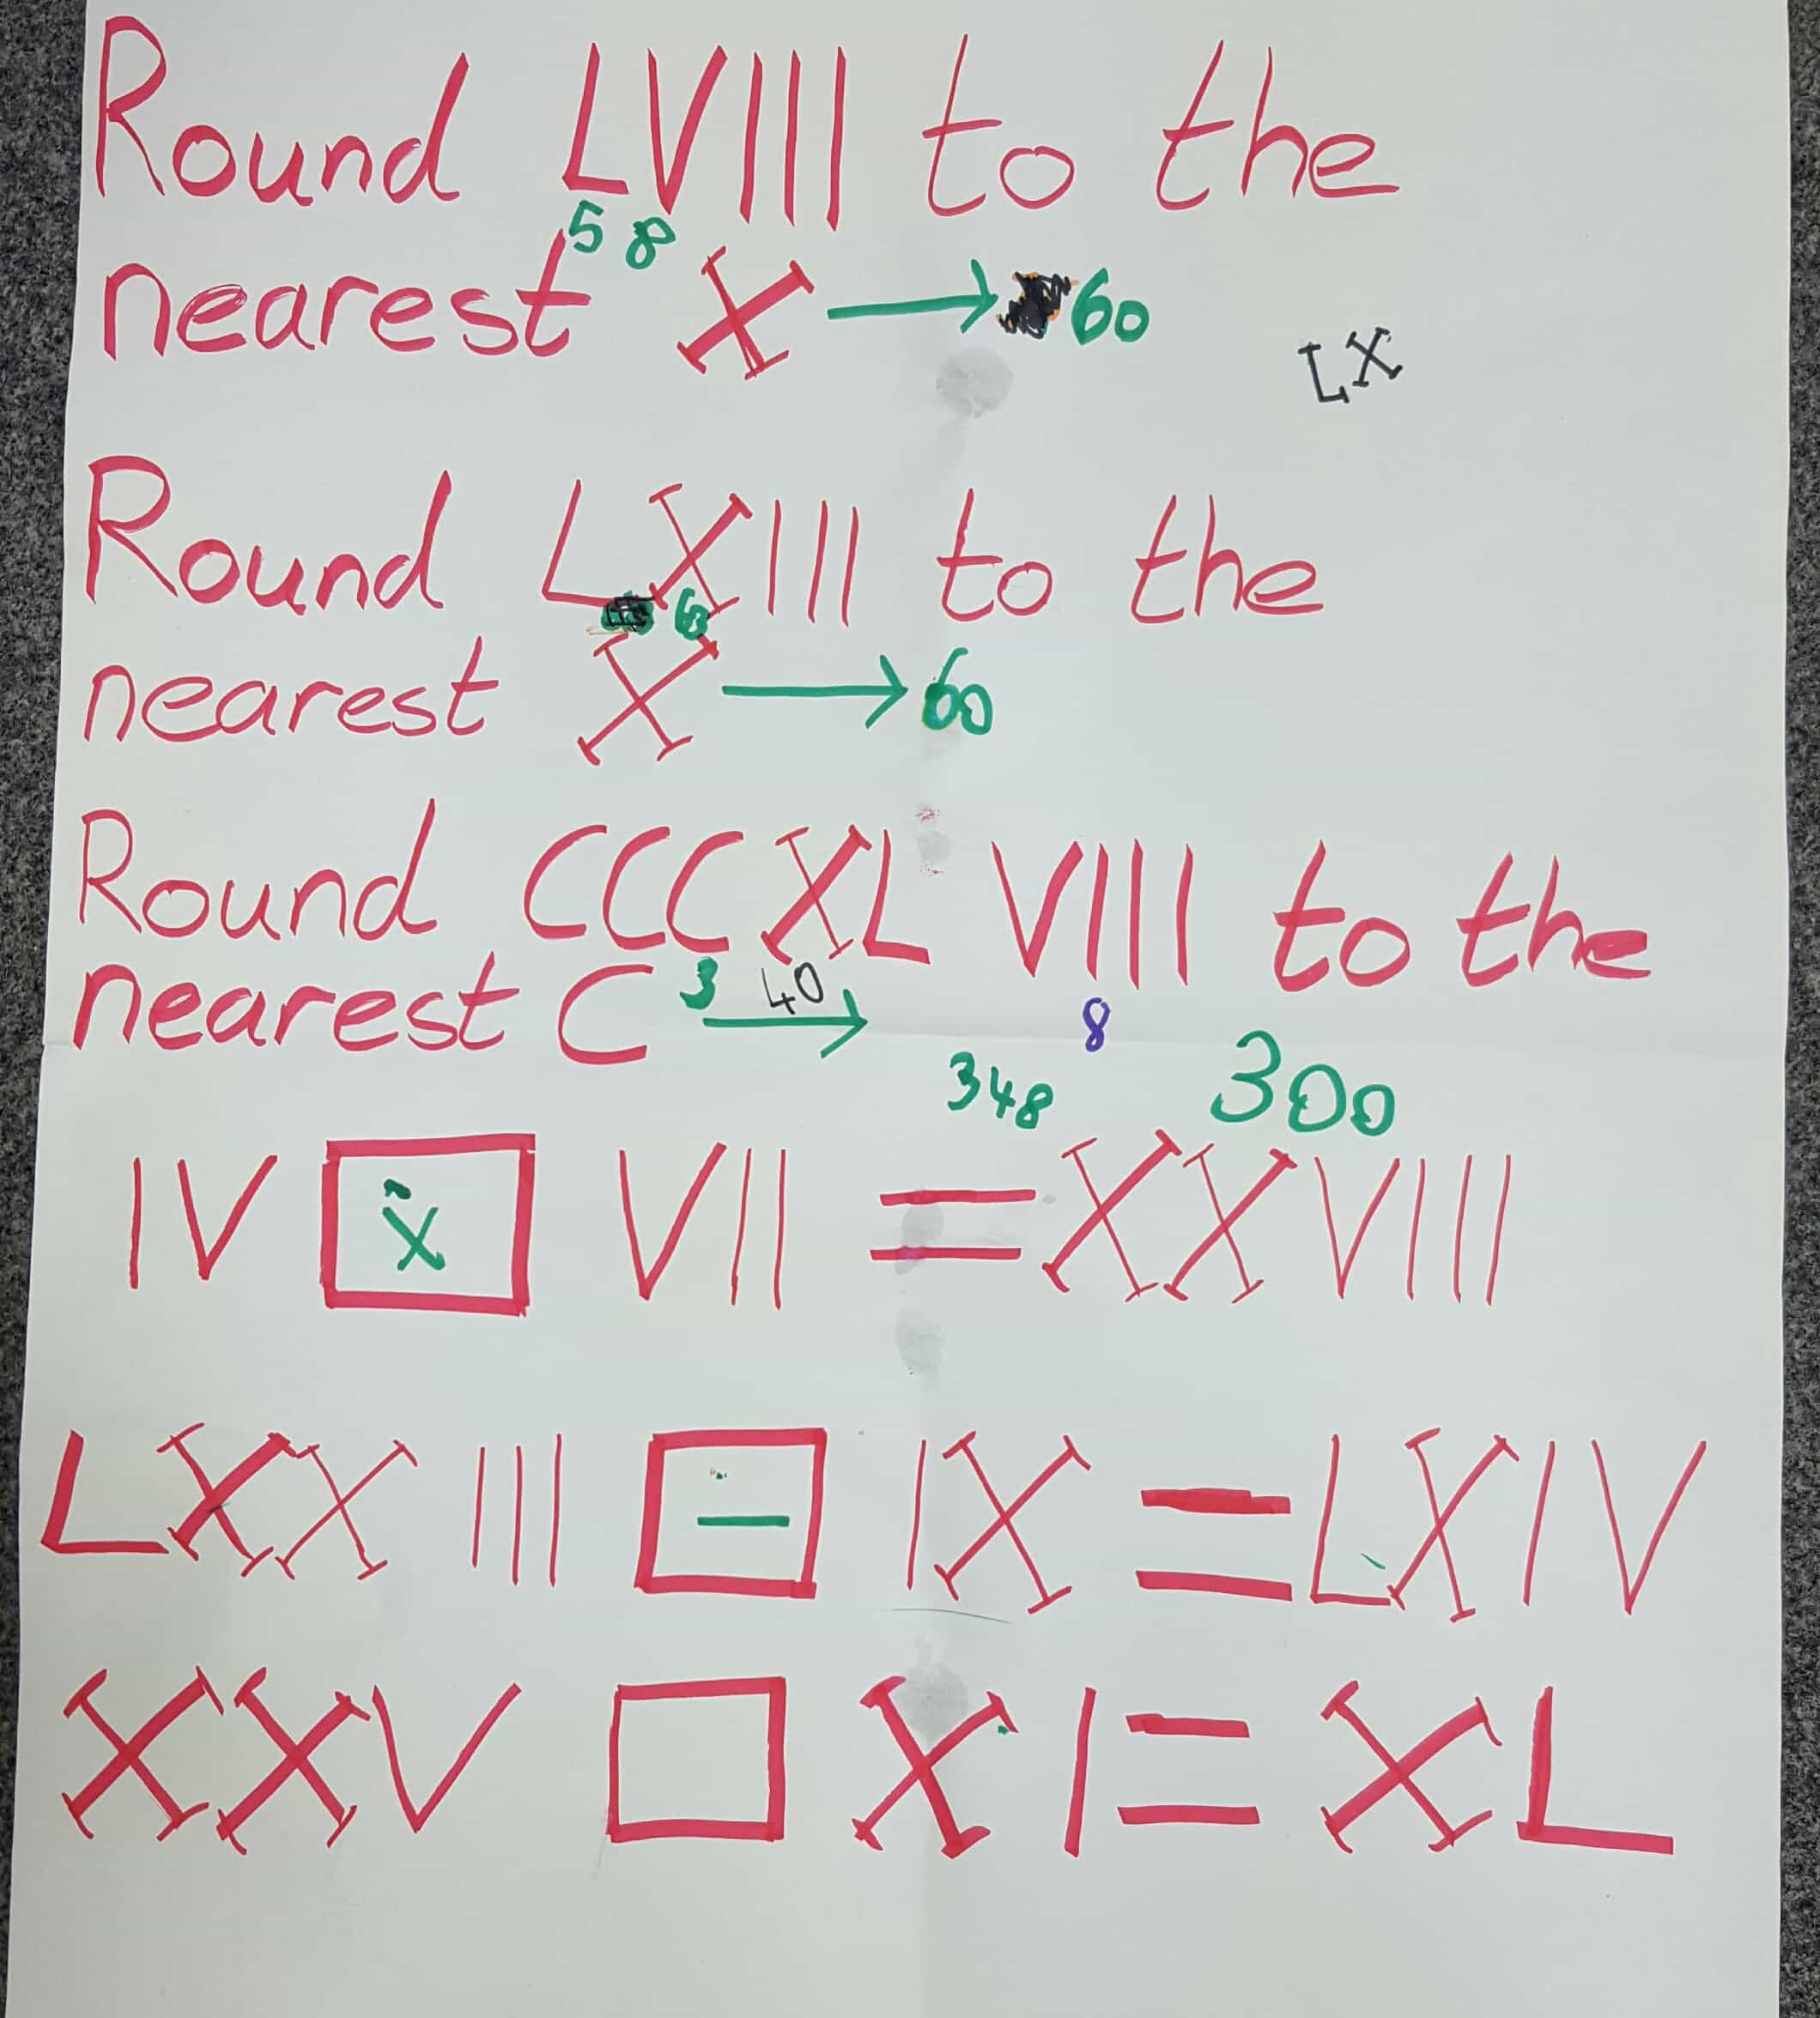 Round LVIII to the
58
nearest X → 60
LX
Round LXIII to the
6
nearest X → 60
Round CCCXL VIII to the
nearest C 3 40 →
8
348 300
IV x VII = XXVIII
LXXIII - IX = LXIV
XXV □ XI = XL